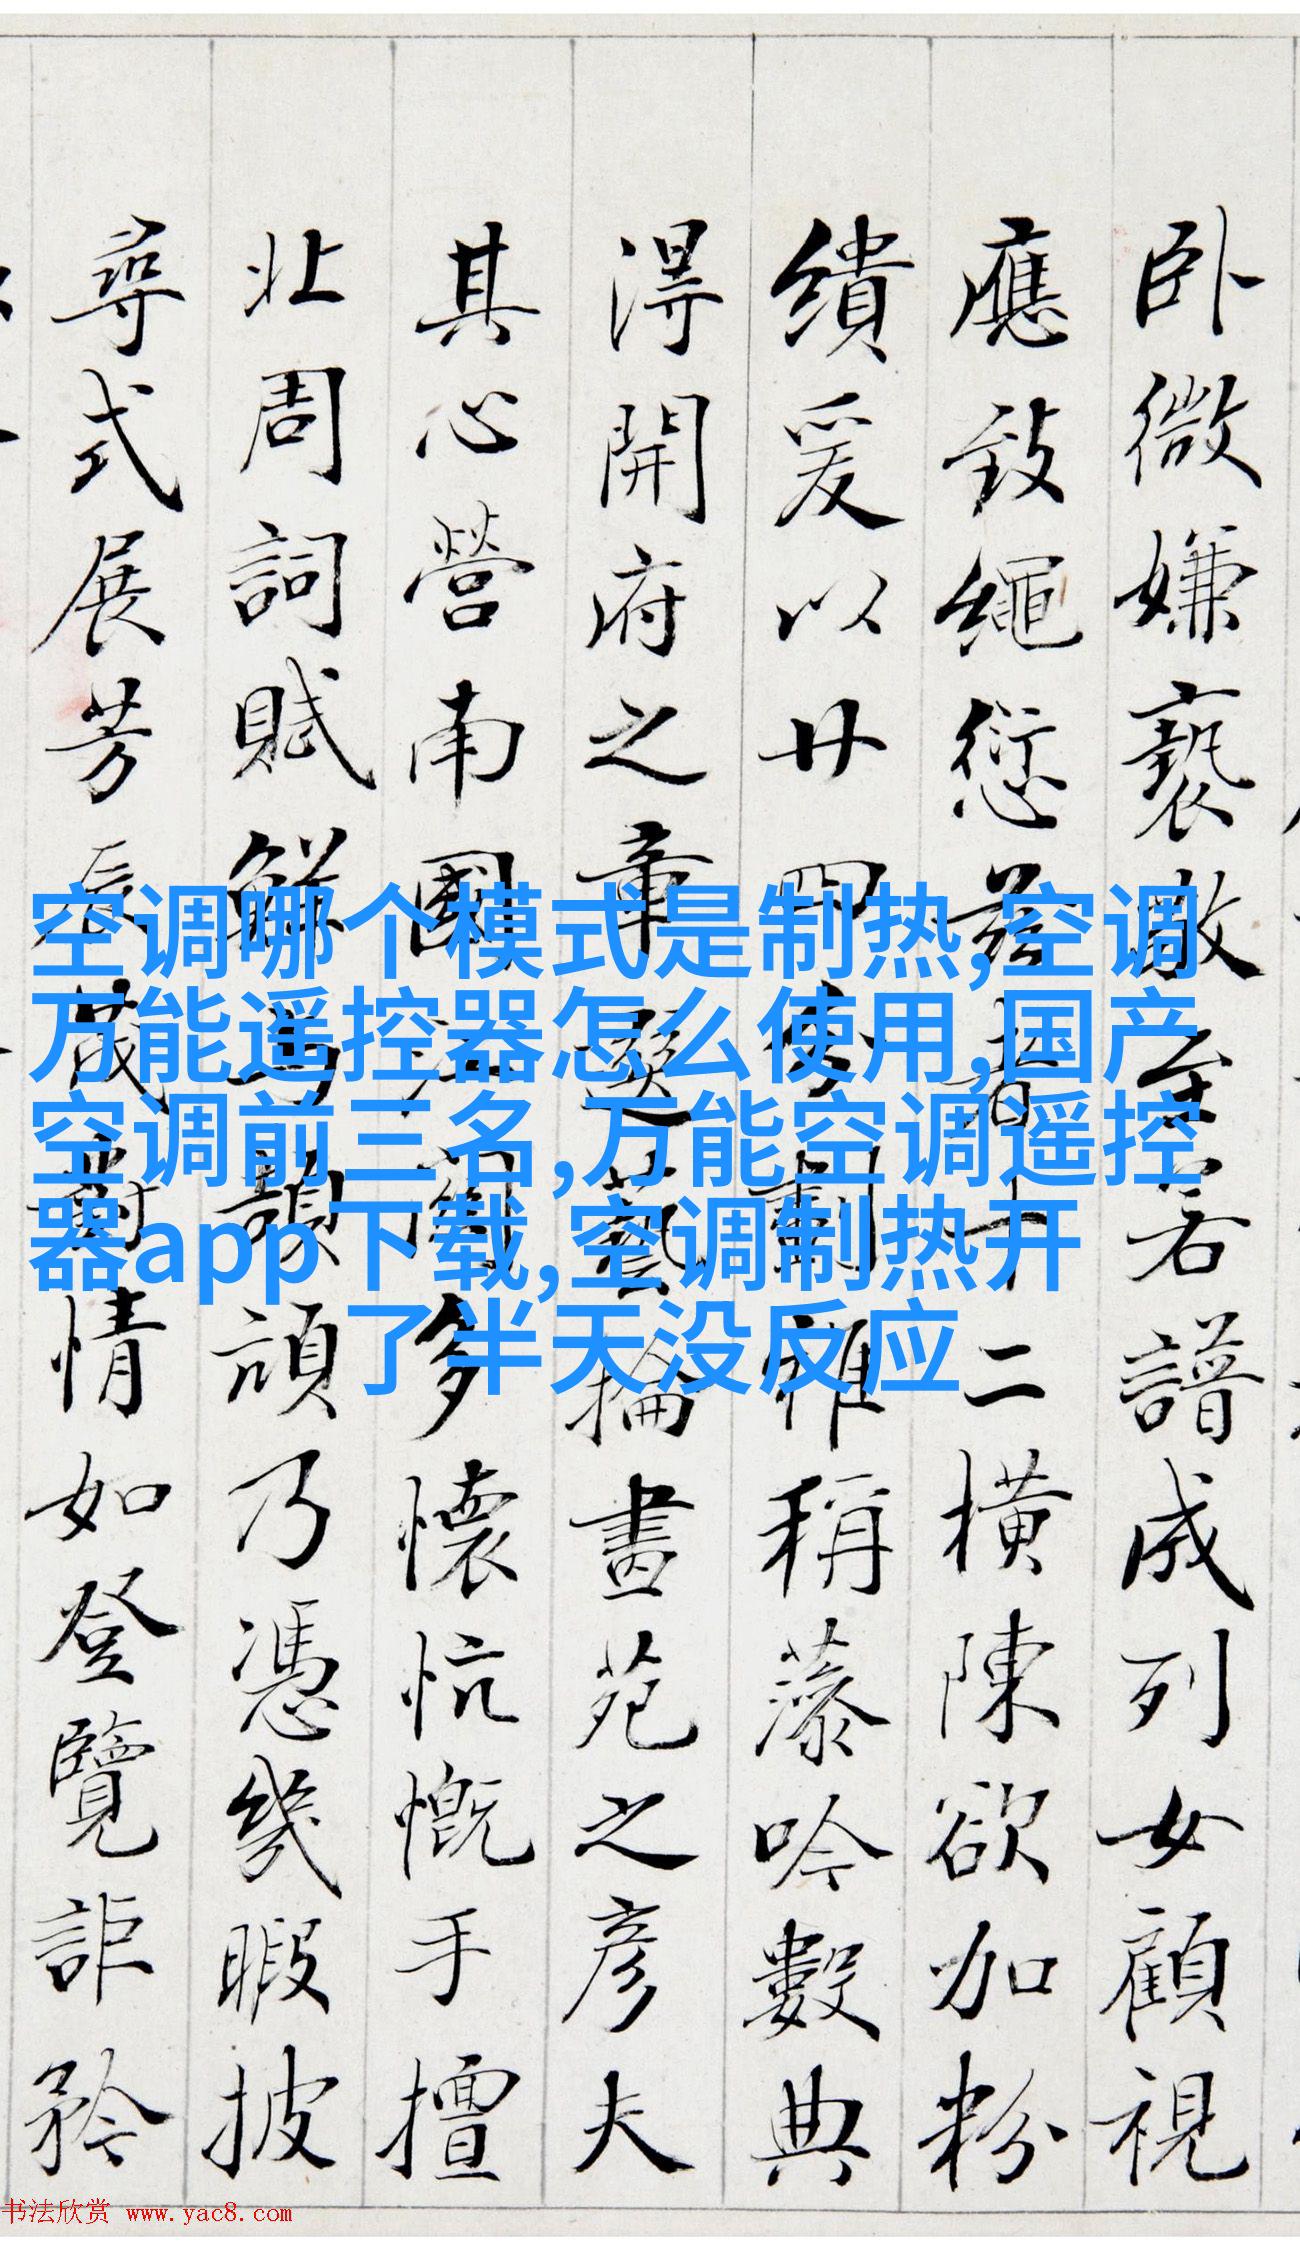 空调哪个模式是制热,空调
万能遥控器怎么使用,国产
空调前三名,万能空调遥控
器app下载,空调制热开
了半天没反应
卧微嫌褻至若譜成列女顧視
應致繩愆茲者十二橫陳欲加粉
繢爰以廿四雅稱藻吟數典
淂開府之章選藝掄畫苑之彥夫
其心營南國江關多懷忼慨手擅
北周詞賦鮮為頏乃憑幾暇披
尋式展芳辰情如登覽詎矜
书法欣赏 www.yac8.com